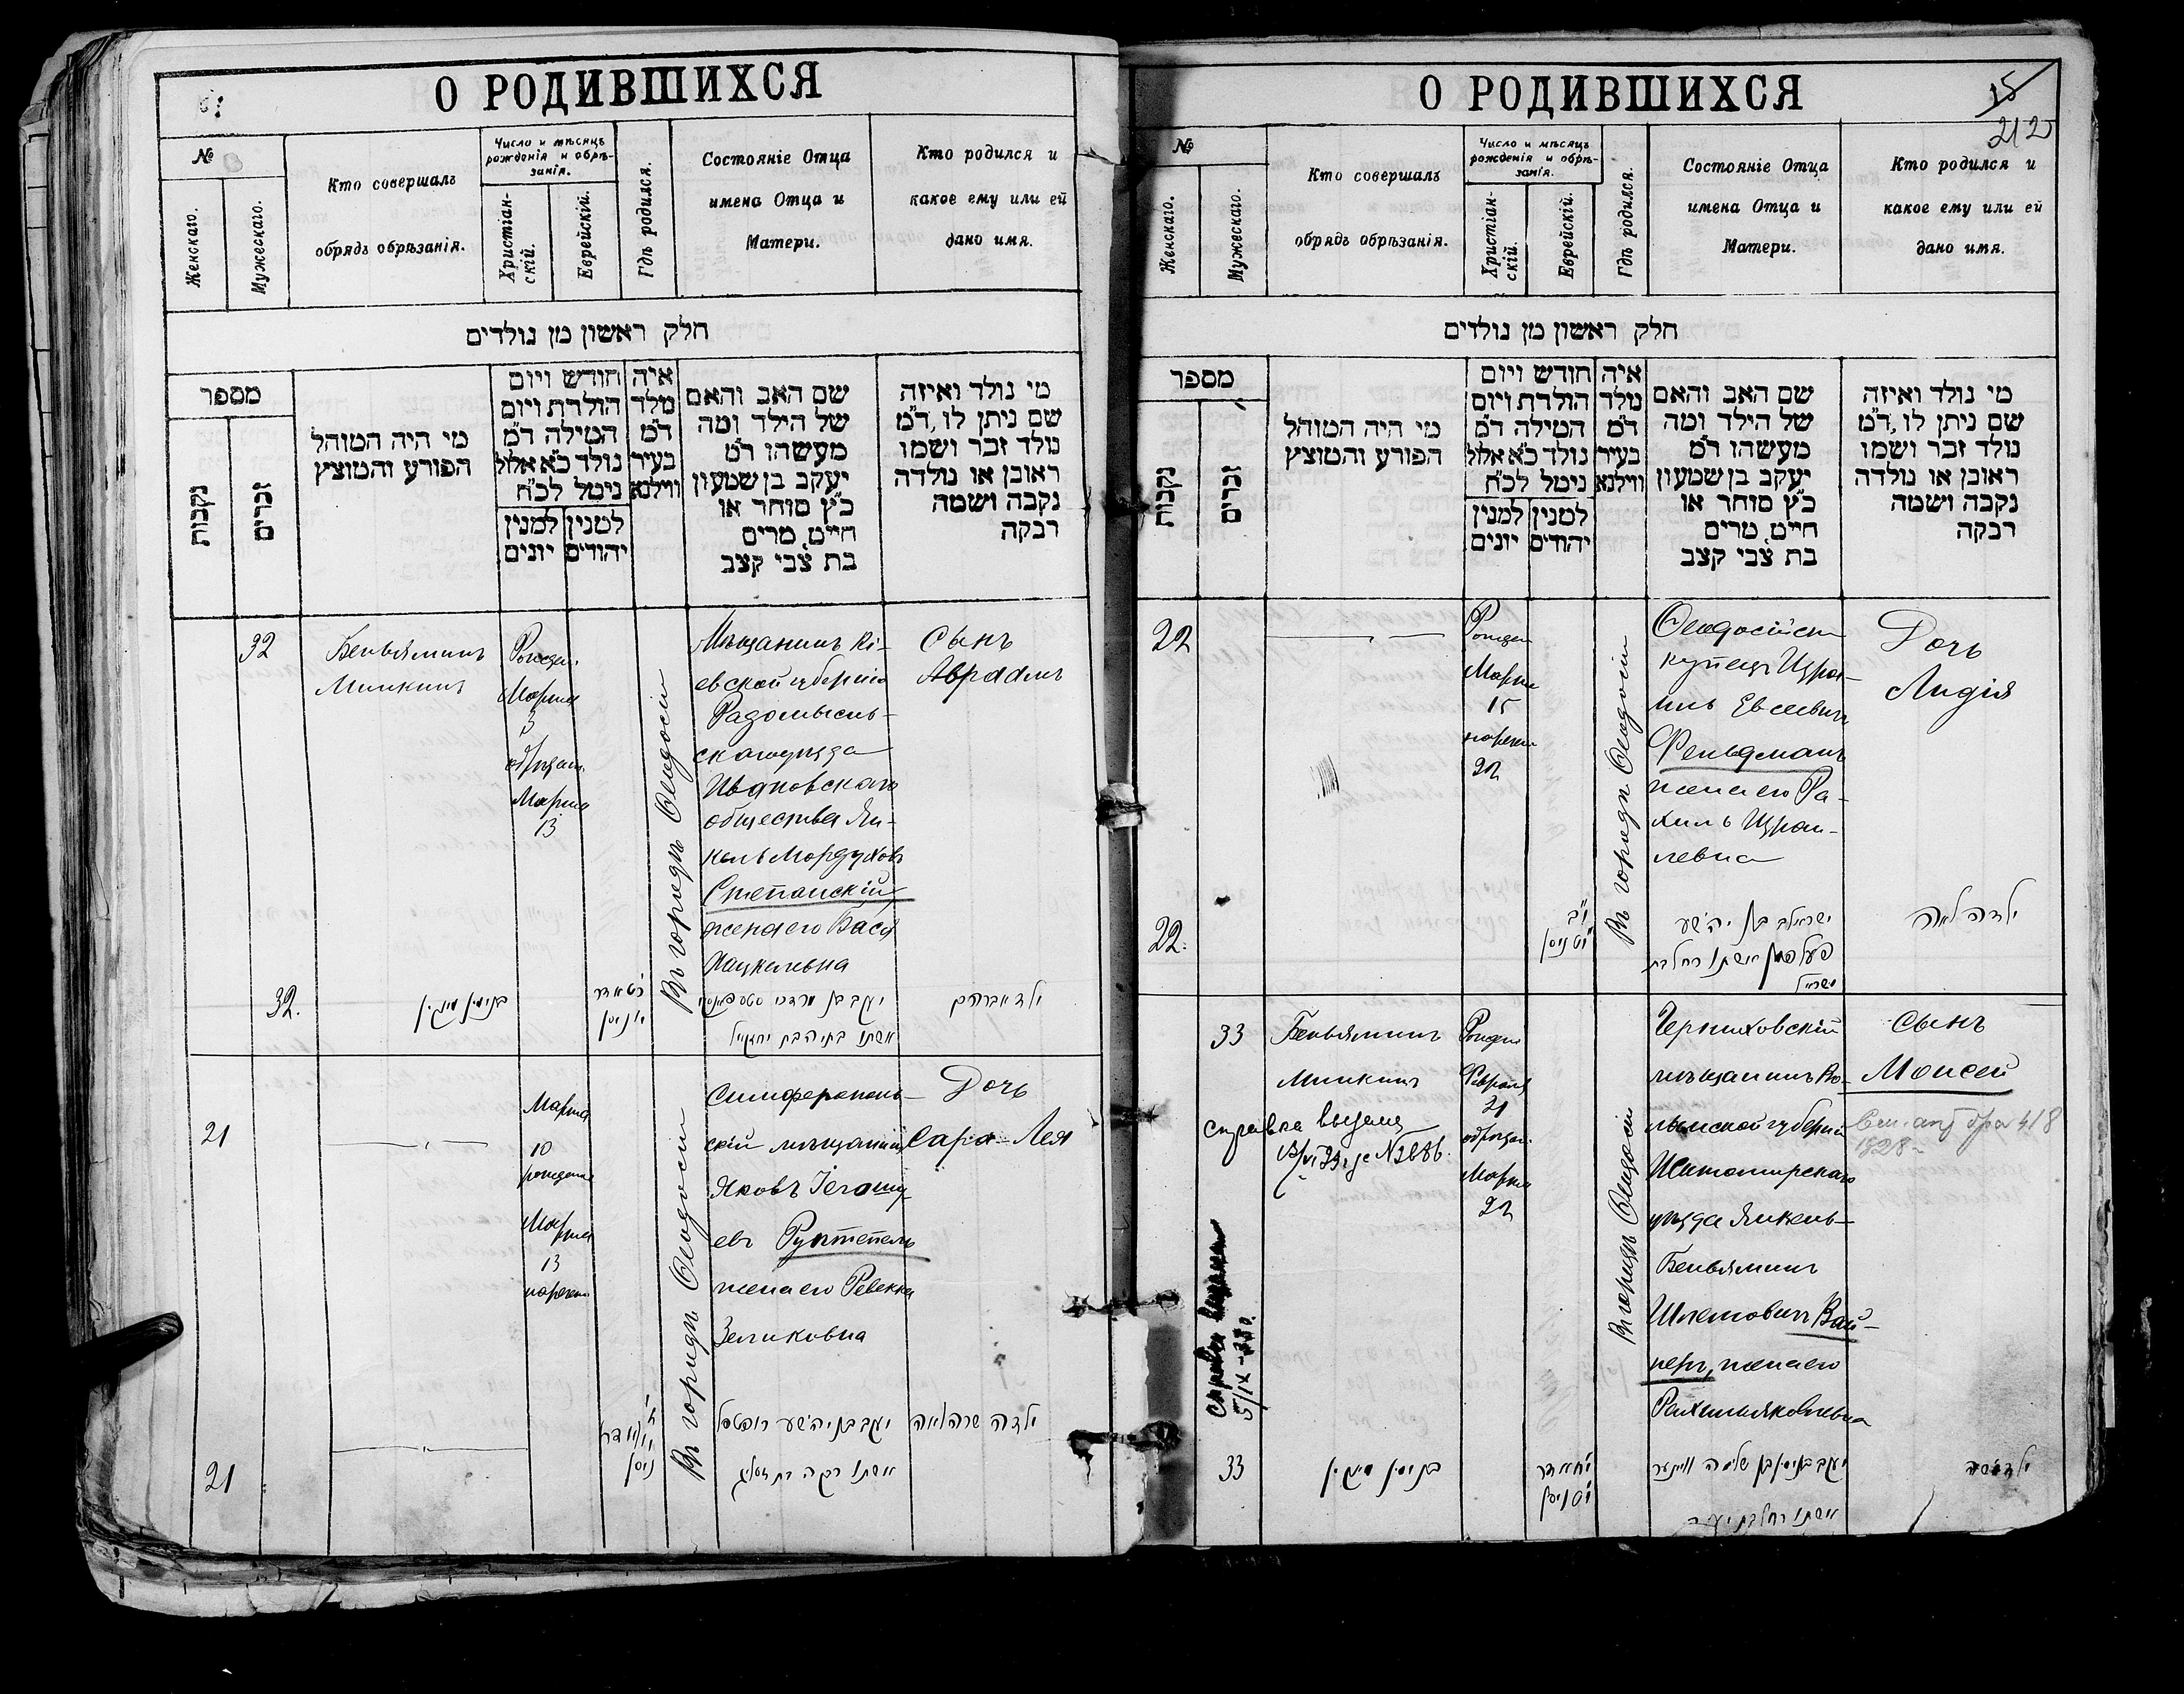 О РОДИВШИХСЯ
№
Женскаго.
Мужескаго.
Кто совершалъ
обрядъ обрѣзанія.
Число и мѣсяцъ
рожденія и обрѣ-
занія.
Христіан-
скій.
Еврейскій.
Гдѣ родился.
Состояніе Отца
имена Отца и
Матери.
Кто родился и
какое ему или ей
дано имя.
חלק ראשון מן נולדים
מספר
נקבות
זכרים
מי היה המוהל
הפורע והמוצץ
חודש ויום
הולדת ויום
המילה ד״מ
נולד כ״א אלול
נימל לכ״ח
למנין למנין
יהודים יונים
איה
נולד
ד״מ
בעיר
ווילנא
שם האב והאם
של הילד ומה
מעשהו ד״מ
יעקב בן שמעון
כ״ץ סוחר או
חייט, מרים
בת צבי קצב
מי נולד ואיזה
שם ניתן לו, ד״מ
נולד זכר ושמו
ראובן או נולדה
נקבה ושמה
רבקה
32
Беньяминъ
Минкинъ
Рожден.
Марта
3
обрѣзан.
Марта
13
Въ городѣ Ѳеодосіи
Мѣщанинъ Кі-
евской губерніи
Радомысль-
скаго уѣзда
Ивановскаго
общества Ян-
кель Мордуховъ
Степанскій
жена его Бася
Хацкелевна
Сынъ
Авраамъ
32.
בנימין מינקין
יעקב בן מרדכי סטפאנסקי
אשתו בתיה בת יחזקאל
ילד אברהם
21
Марта
10
рождена
Марта
13
наречена
Въ городѣ Ѳеодосіи
Симферополь-
скій мѣщанинъ
Яковъ Іегошу-
евъ Руптепель
жена его Ревекка
Зеликовна
Дочь
Сара-Лея
21
יעקב בן יהושע רופטפל
אשתו רבקה בת זעליג
ילדה שרה לאה
О РОДИВШИХСЯ
15
212
№
Женскаго.
Мужескаго.
Кто совершалъ
обрядъ обрѣзанія.
Число и мѣсяцъ
рожденія и обрѣ-
занія.
Христіан-
скій.
Еврейскій.
Гдѣ родился.
Состояніе Отца
имена Отца и
Матери.
Кто родился и
какое ему или ей
дано имя.
חלק ראשון מן נולדים
מספר
נקבות
זכרים
מי היה המוהל
הפורע והמוצץ
חודש ויום
הולדת ויום
המילה ד״מ
נולד כ״א אלול
נימל לכ״ח
למנין למנין
יהודים יונים
איה
נולד
ד״מ
בעיר
ווילנא
שם האב והאם
של הילד ומה
מעשהו ד״מ
יעקב בן שמעון
כ״ץ סוחר או
חייט, מרים
בת צבי קצב
מי נולד ואיזה
שם ניתן לו, ד״מ
נולד זכר ושמו
ראובן או נולדה
נקבה ושמה
רבקה
22
Рожден
Марта
15
наречен
22
Въ городѣ Ѳеодосіи
Ѳеодосійск
купецъ Изра-
иль Евсеевичъ
Фельдманъ
жена его Ра-
хиль Израи-
левна
Дочь
Лидія
22.
ישראל בן יהושע
פעלדמאן אשתו רחל בת
ישראל
ילדה לאה
33
Беньяминъ
Минкинъ
справка выдана
Рожден
Февраля
21
обрѣзан.
Марта
22
Въ городѣ Ѳеодосіи
Черняховскій
мѣщанинъ Во-
лынской губерніи
Житомирскаго
уѣзда Янкель-
Беньяминъ
Шлемовичъ Вай-
неръ, жена его
Рахиль Яковлевна
Сынъ
Моисей
1928
справка выдана
33
בנימין מינקין
יעקב בנימין בן שלמה ווינער
אשתו רחל בת יעקב
ילד משה